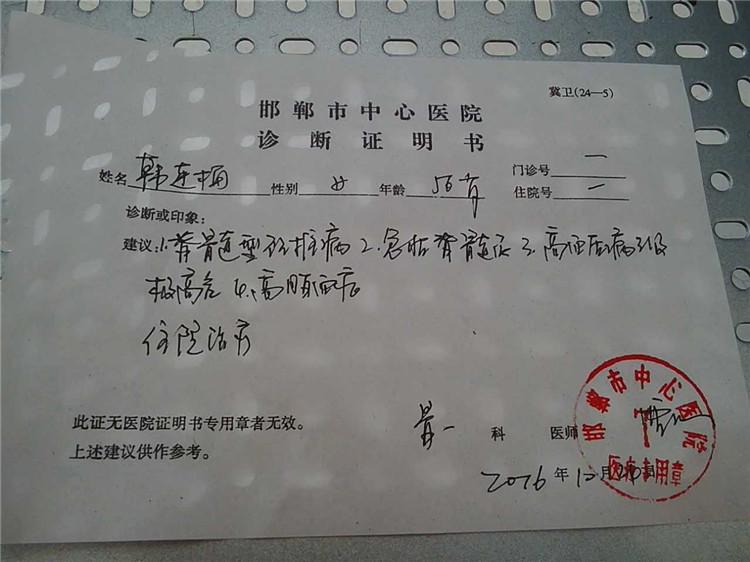 冀卫(24—5)
邯郸市中心医院
诊断证明书
姓名 韩连 性别 女 年龄 56岁 门诊号 一
住院号 一
诊断或印象:
建议:1.脊髓型颈椎病 2.急性脊髓炎 3.高血压病3级
极高危 4.高脂血症
住院治疗
此证无医院证明书专用章者无效。
上述建议供作参考。
骨一 科 医师
2016年12月20日
邯郸市中心医院
医疗专用章